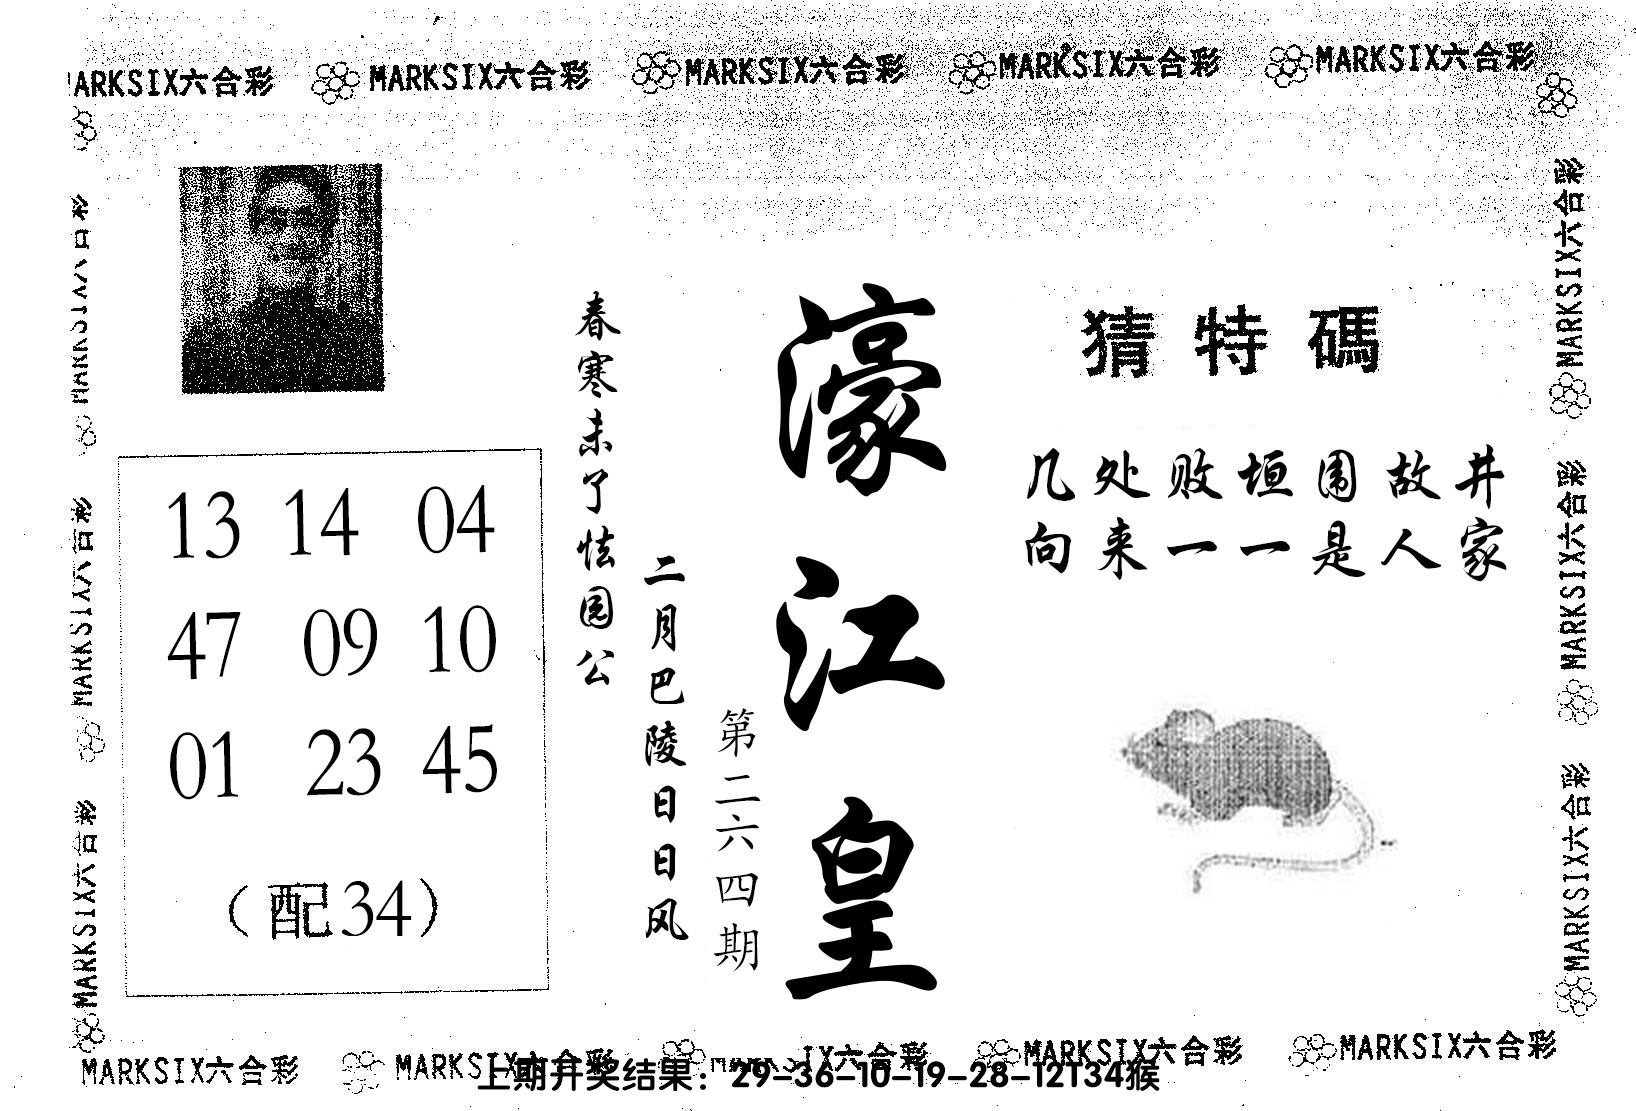 MARKSIX六合彩 MARKSIX六合彩 MARKSIX六合彩 MARKSIX六合彩 MARKSIX六合彩
MARKSIX六合彩
MARKSIX六合彩
MARKSIX六合彩
13 14 04
47 09 10
01 23 45
(配34)
春寒未了怯园公
二月巴陵日日风
第二六四期
濠江皇
猜特碼
几处败垣围故井
向来一一是人家
MARKSIX六合彩
MARKSIX六合彩
MARKSIX六合彩
MARKSIX六合彩 MARKSIX六合彩 MARKSIX六合彩 MARKSIX六合彩 MARKSIX六合彩
上期开奖结果：29-36-10-19-28-12T34猴